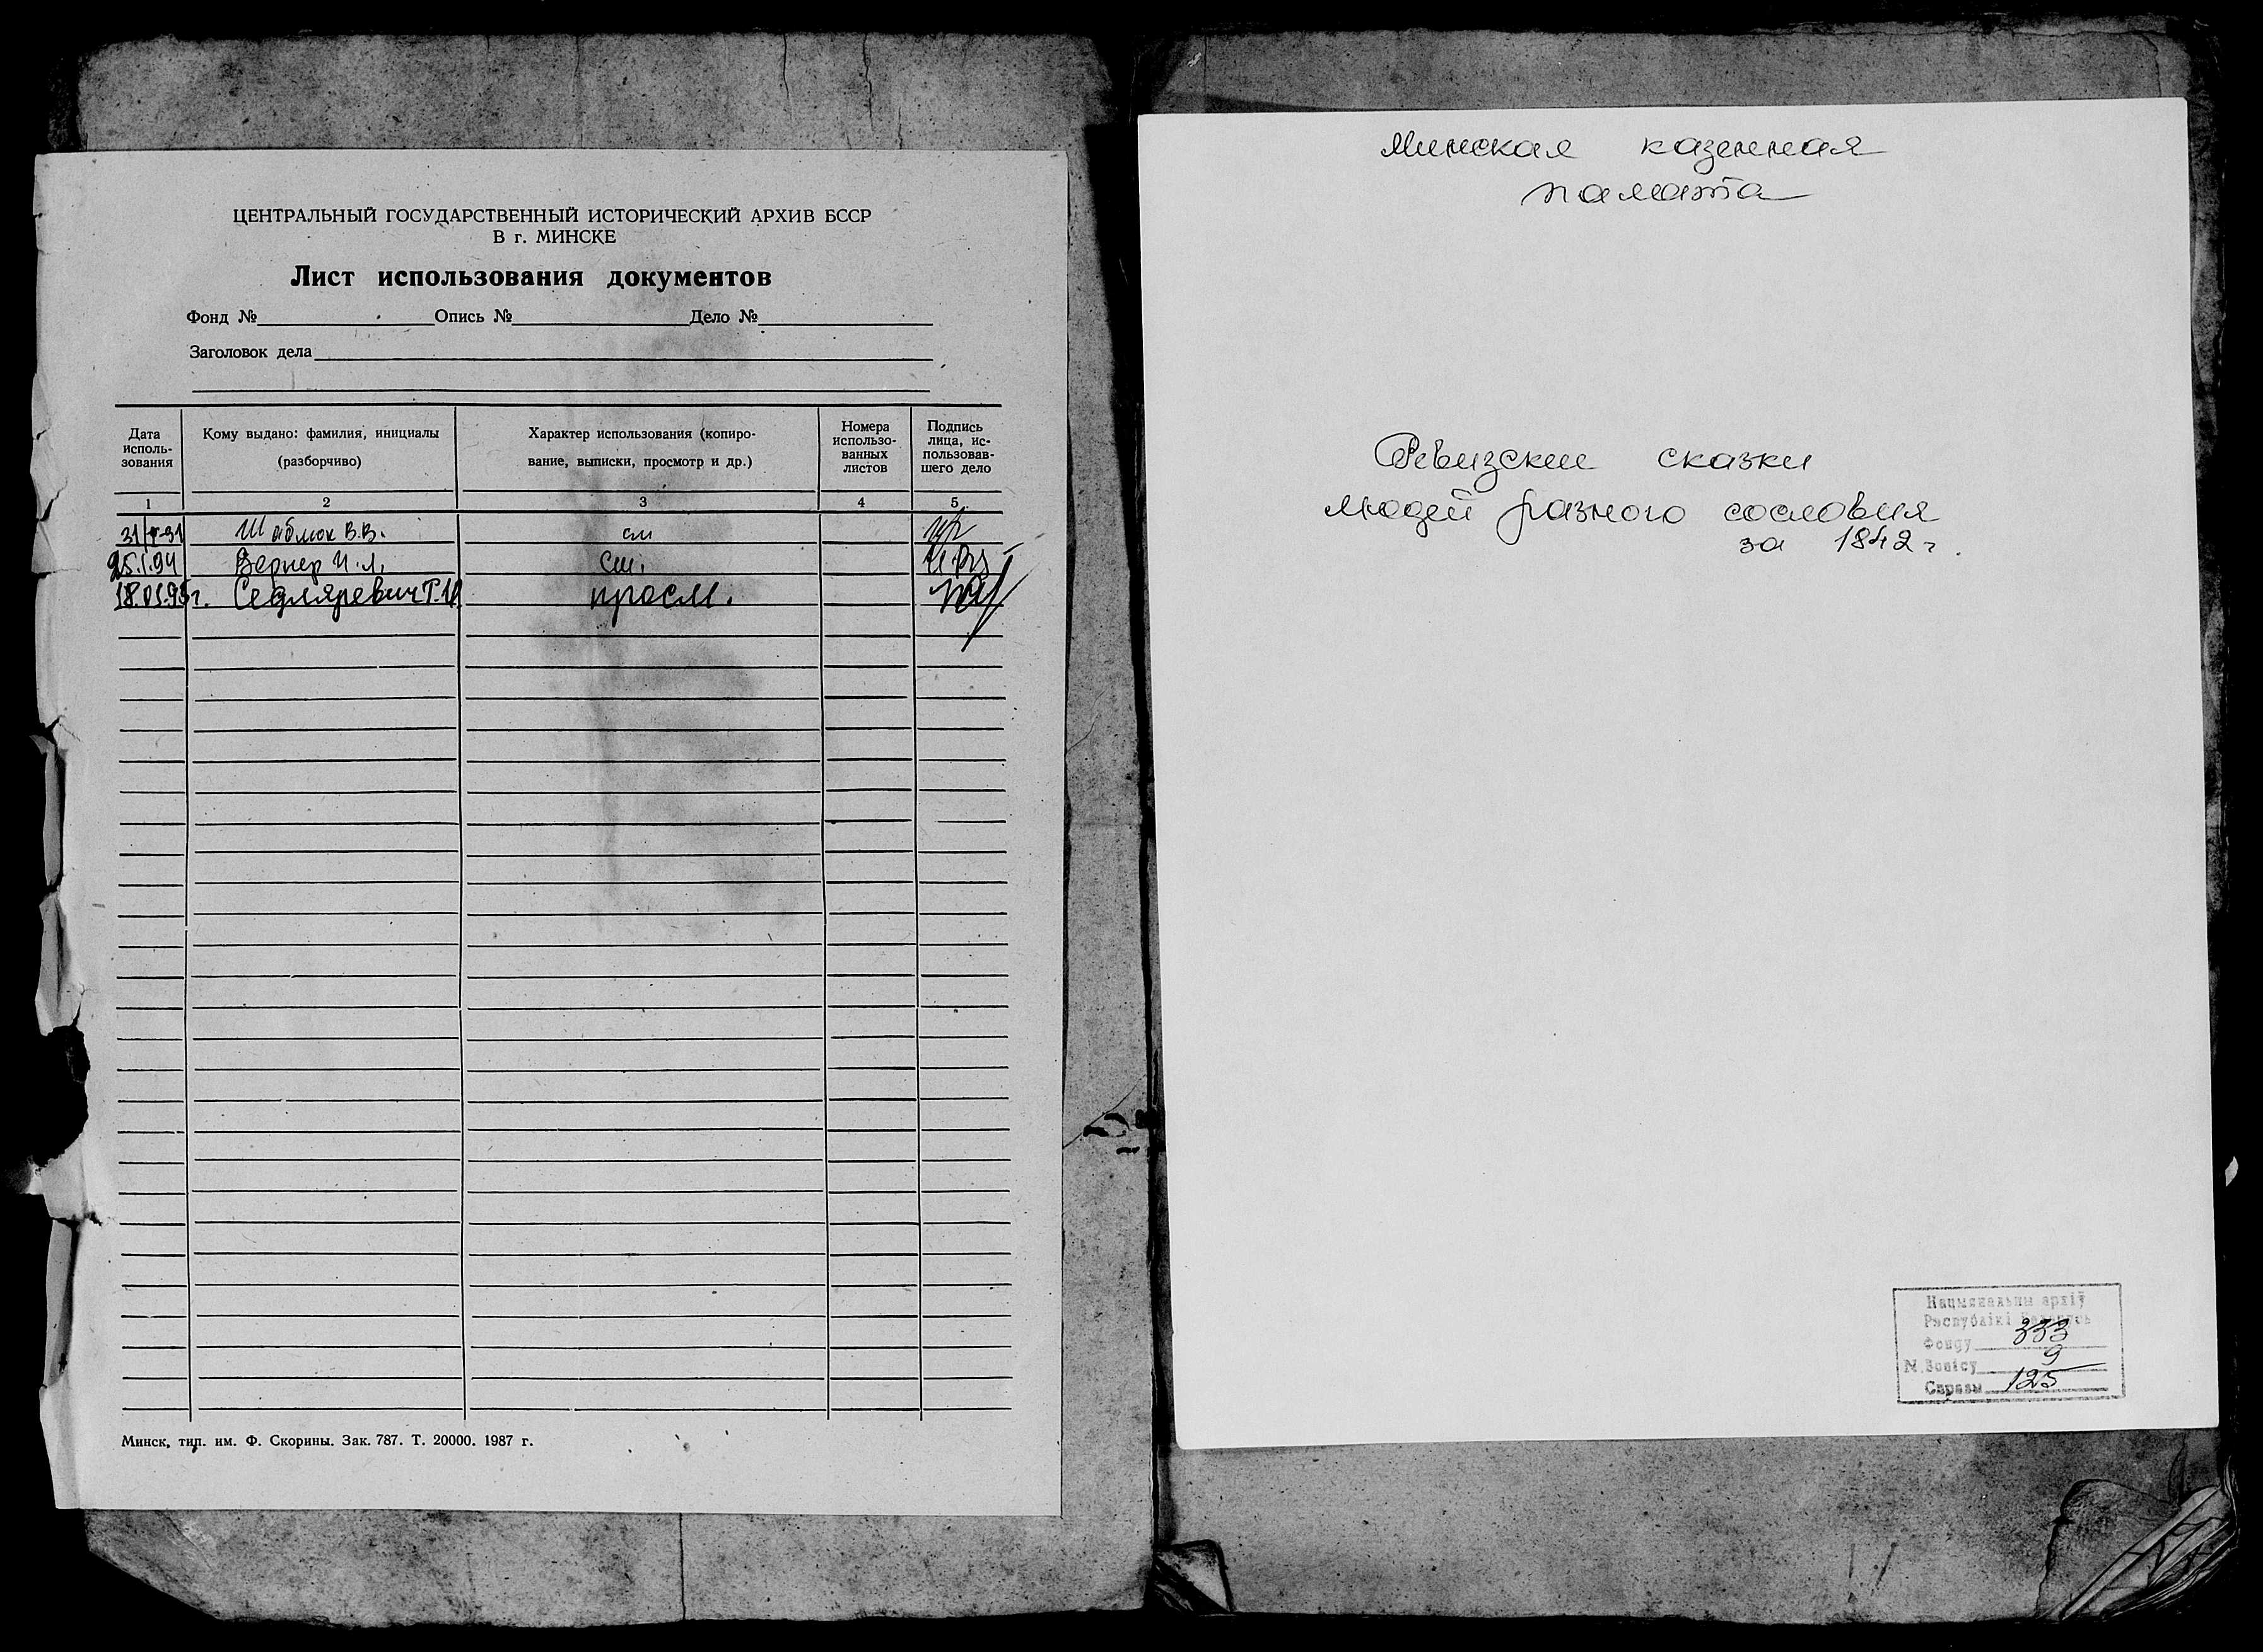 ЦЕНТРАЛЬНЫЙ ГОСУДАРСТВЕННЫЙ ИСТОРИЧЕСКИЙ АРХИВ БССР
В г. МИНСКЕ
Лист использования документов
Фонд № Опись № Дело №
Заголовок дела
Дата исполь-зования
Кому выдано: фамилия, инициалы (разборчиво)
Характер использования (копиро-вание, выписки, просмотр и др.)
Номера использо-ванных листов
Подпись лица, ис-пользовав-шего дело
1 2 3 4 5
Шаблюк В.В. см
25.I.94 Вернер И.Л. см.
18.01.95г. Седляревич Т.И. просм.
Минск, тип. им. Ф. Скорины. Зак. 787. Т. 20000. 1987 г.
Минская казенная
палата
Ревизские сказки
людей разного сословия
за 1842 г.
Нацыянальны архіў
Рэспублікі Беларусь
Фонду 333
N Вопісу 9
Справы 125